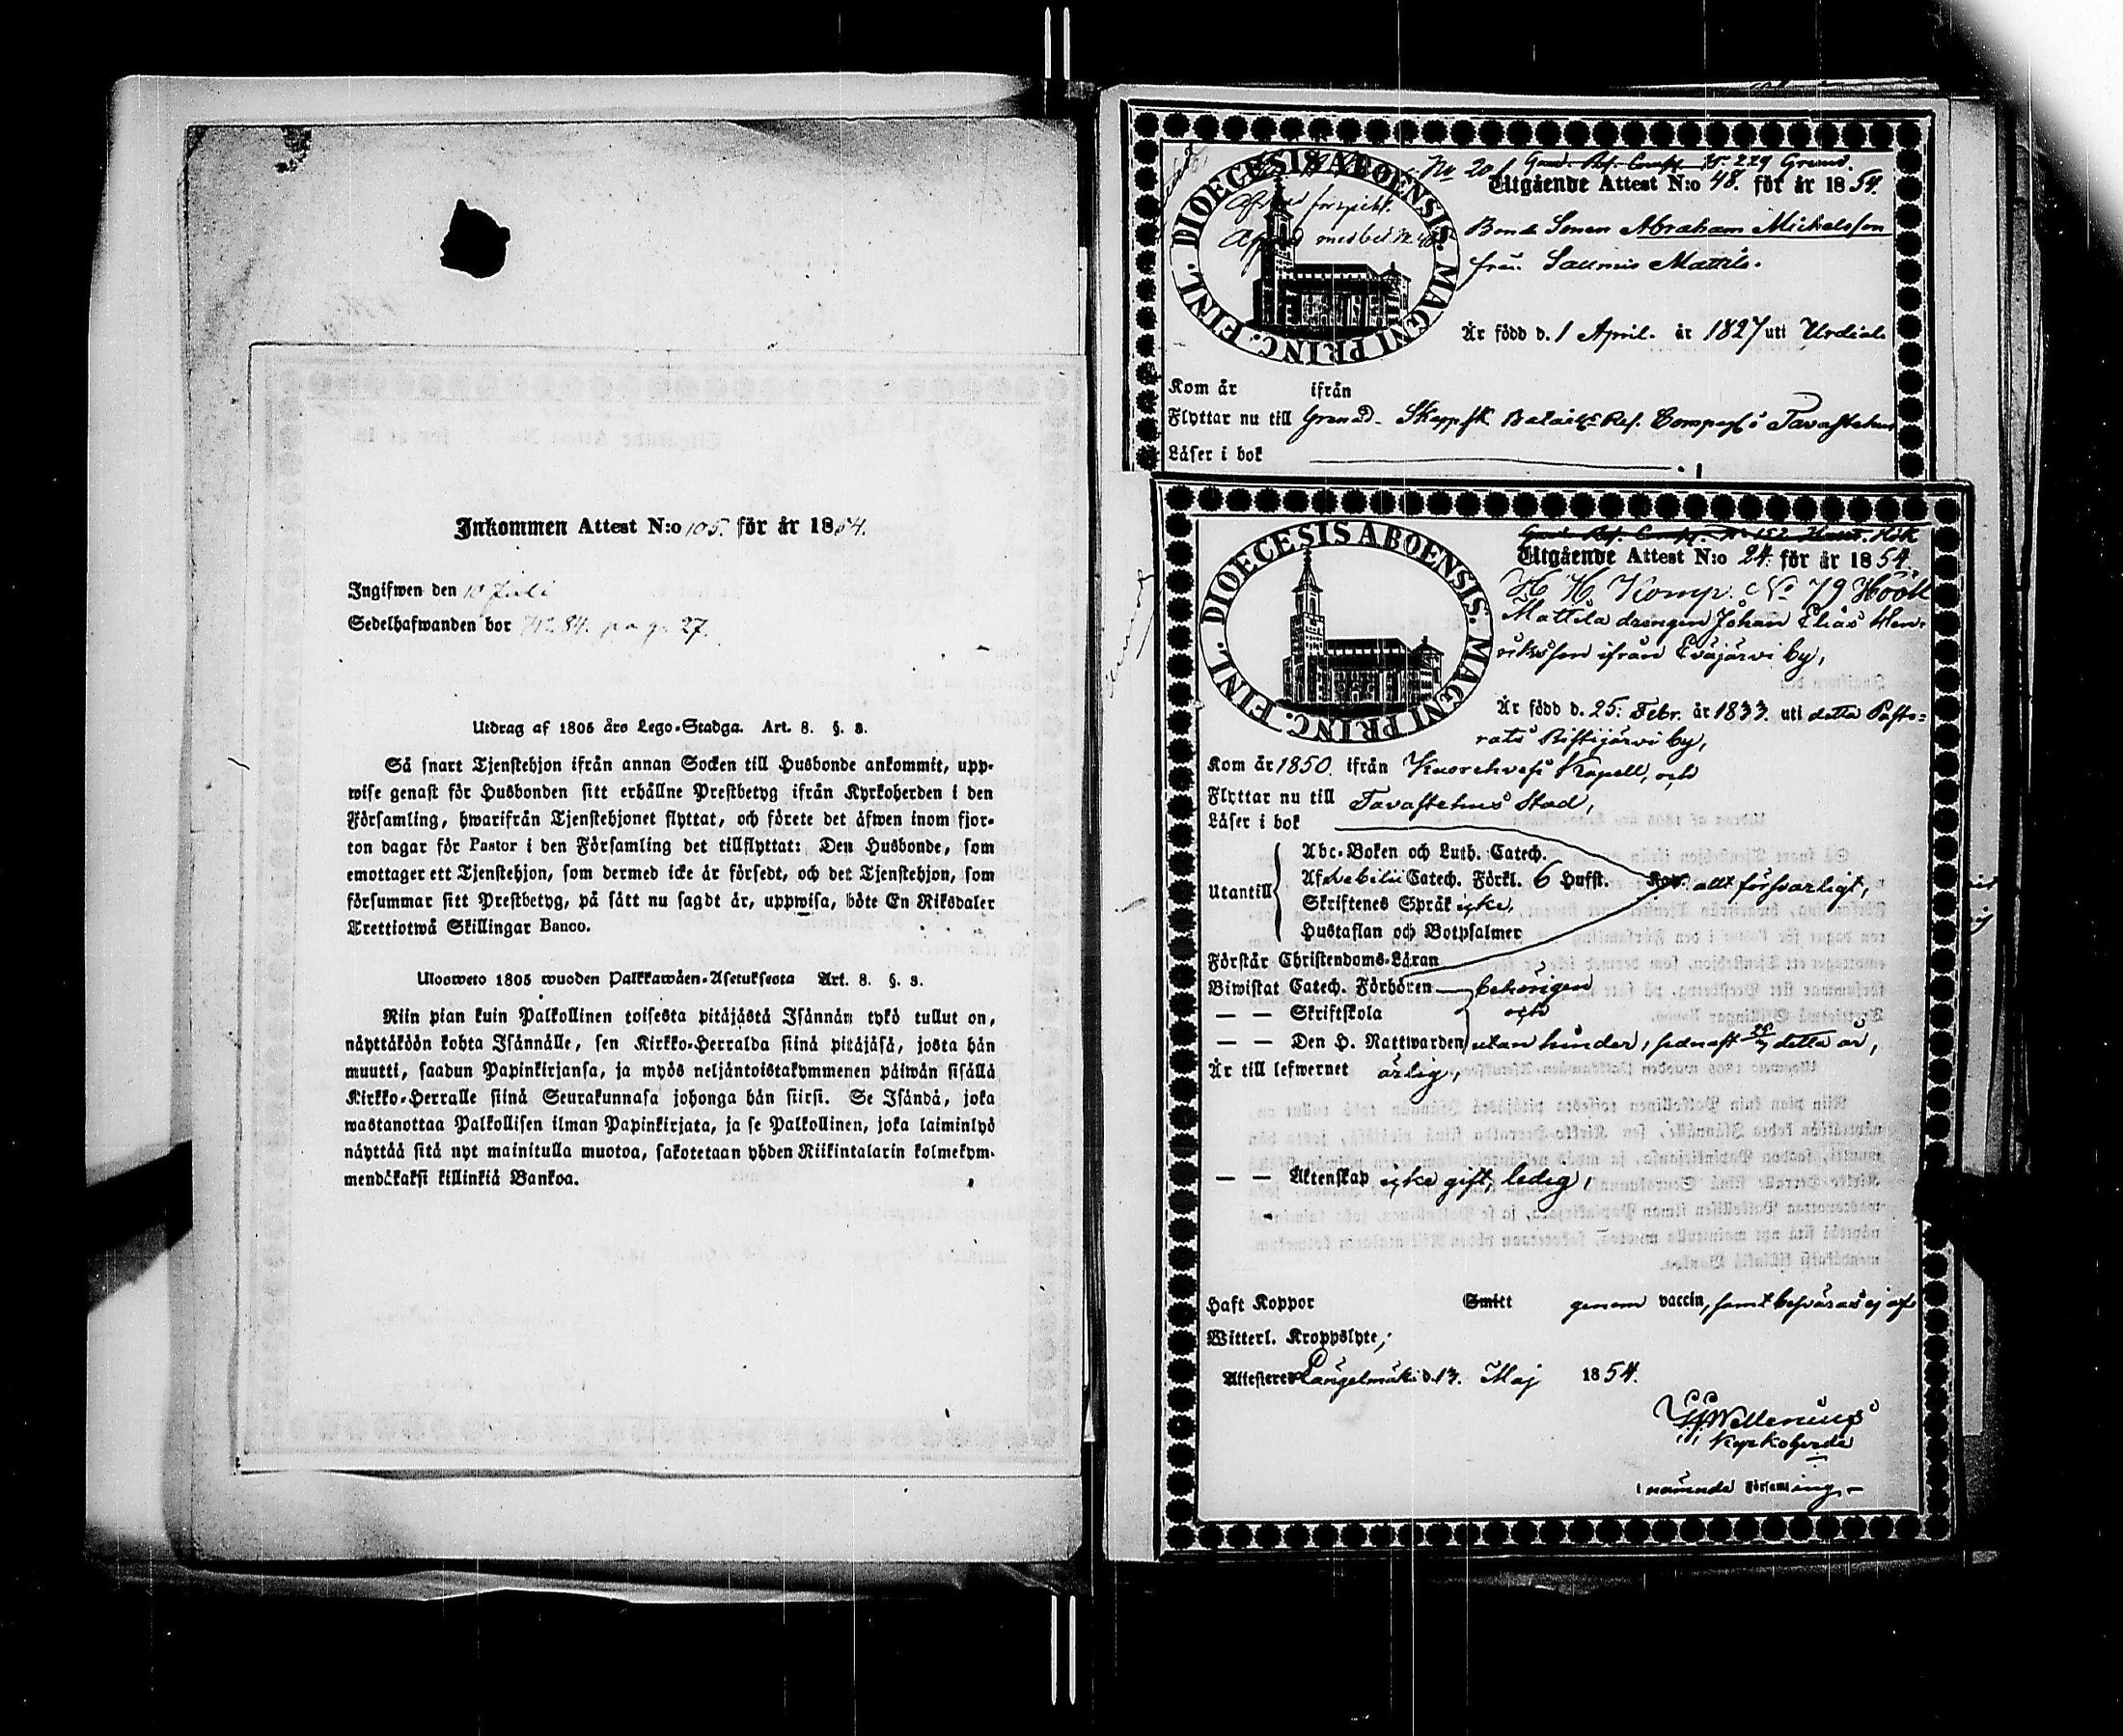 Inkommen Attest N:o 105. för år 1854.
Ingifwen den 10 Juli
Sedelhafwanden bor N:o 84. pag. 27.
Utdrag af 1805 års Lego-Stadga. Art. 8. §. 3.
Så snart Tjenstehjon ifrån annan Socken till Husbonde ankommit, upp-
wise genast för Husbonden sitt erhållne Prestbetyg ifrån Kyrkoherden i den
Församling, hwarifrån Tjenstehjonet flyttat, och förete det äfwen inom fjor-
ton dagar för Pastor i den Församling det tillflyttat: Den Husbonde, som
emottager ett Tjenstehjon, som dermed icke är försedt, och det Tjenstehjon, som
försummar sitt Prestbetyg, på sätt nu sagdt är, uppwisa, böte En Riksdaler
Trettiotwå Skillingar Banco.
Ulosweto 1805 wuoden Palkkawäen-Asetuksesta Art. 8. §. 3.
Niin pian kuin Palkollinen toisesta pitäjästä Isännän tykö tullut on,
näyttäköön kohta Isännälle, sen Kirkko-Herralda siinä pitäjäsä, josta hän
muutti, saadun Papinkirjansa, ja myös neljäntoistakymmenen päiwän sisällä
Kirkko-Herralle siinä Seurakunnasa johonga hän siirsi. Se Isändä, joka
wastanottaa Palkollisen ilman Papinkirjata, ja se Palkollinen, joka laiminlyö
näyttää sitä nyt mainitulla muotoa, sakotetaan yhden Riikintalarin kolmekym-
mendäkaksi killinkiä Bankoa.
DIOECESIS ABOENSIS. MAGNI PRINC. FINL.
No 20
Utgående Attest N:o 48. för år 1854.
Bonde Sonen Abraham Michelsson
från Saumis Mattila.
Är född d. 1 April. år 1827 uti Urdiala
Kom år ifrån
Flyttar nu till Grenad. Skarpsk. Batail:s Res. Comp. i Tavastehus
Läser i bok
DIOECESIS ABOENSIS. MAGNI PRINC. FINL.
Utgående Attest N:o 24. för år 1854.
H H Komp. No 79 Höök
Mattila drengen Johan Elias Hen-
riksson ifrån Eväjärvi by,
Är född d. 25: Febr. år 1833. uti detta Pasto-
rats by,
Kom år 1850. ifrån Kuorehvesi Kapell, och
Flyttar nu till Tavastehus Stad,
Läser i bok
Utantill
Abc-Boken och Luth. Catech.
Af Catech. Förkl. 6 Hufst. allt försvarligt,
Skriftenes Språk icke,
Hustaflan och Botpsalmer
Förstår Christendoms-Läran
Biwistat Catech. Förhören behörigen
— — Skriftskola och
— — Den H. Nattwarden utan hinder, sednast detta år,
Är till lefwernet ärlig,
— — Äktenskap icke gift, ledig,
Haft Koppor Smitt genom vaccin, samt besväras ej af
Witterl. Kroppslyte,
Attesteres Längelmäki d. 13. Maj 1854.
Wallenius
Kyrkoherde
i nämnde Församling